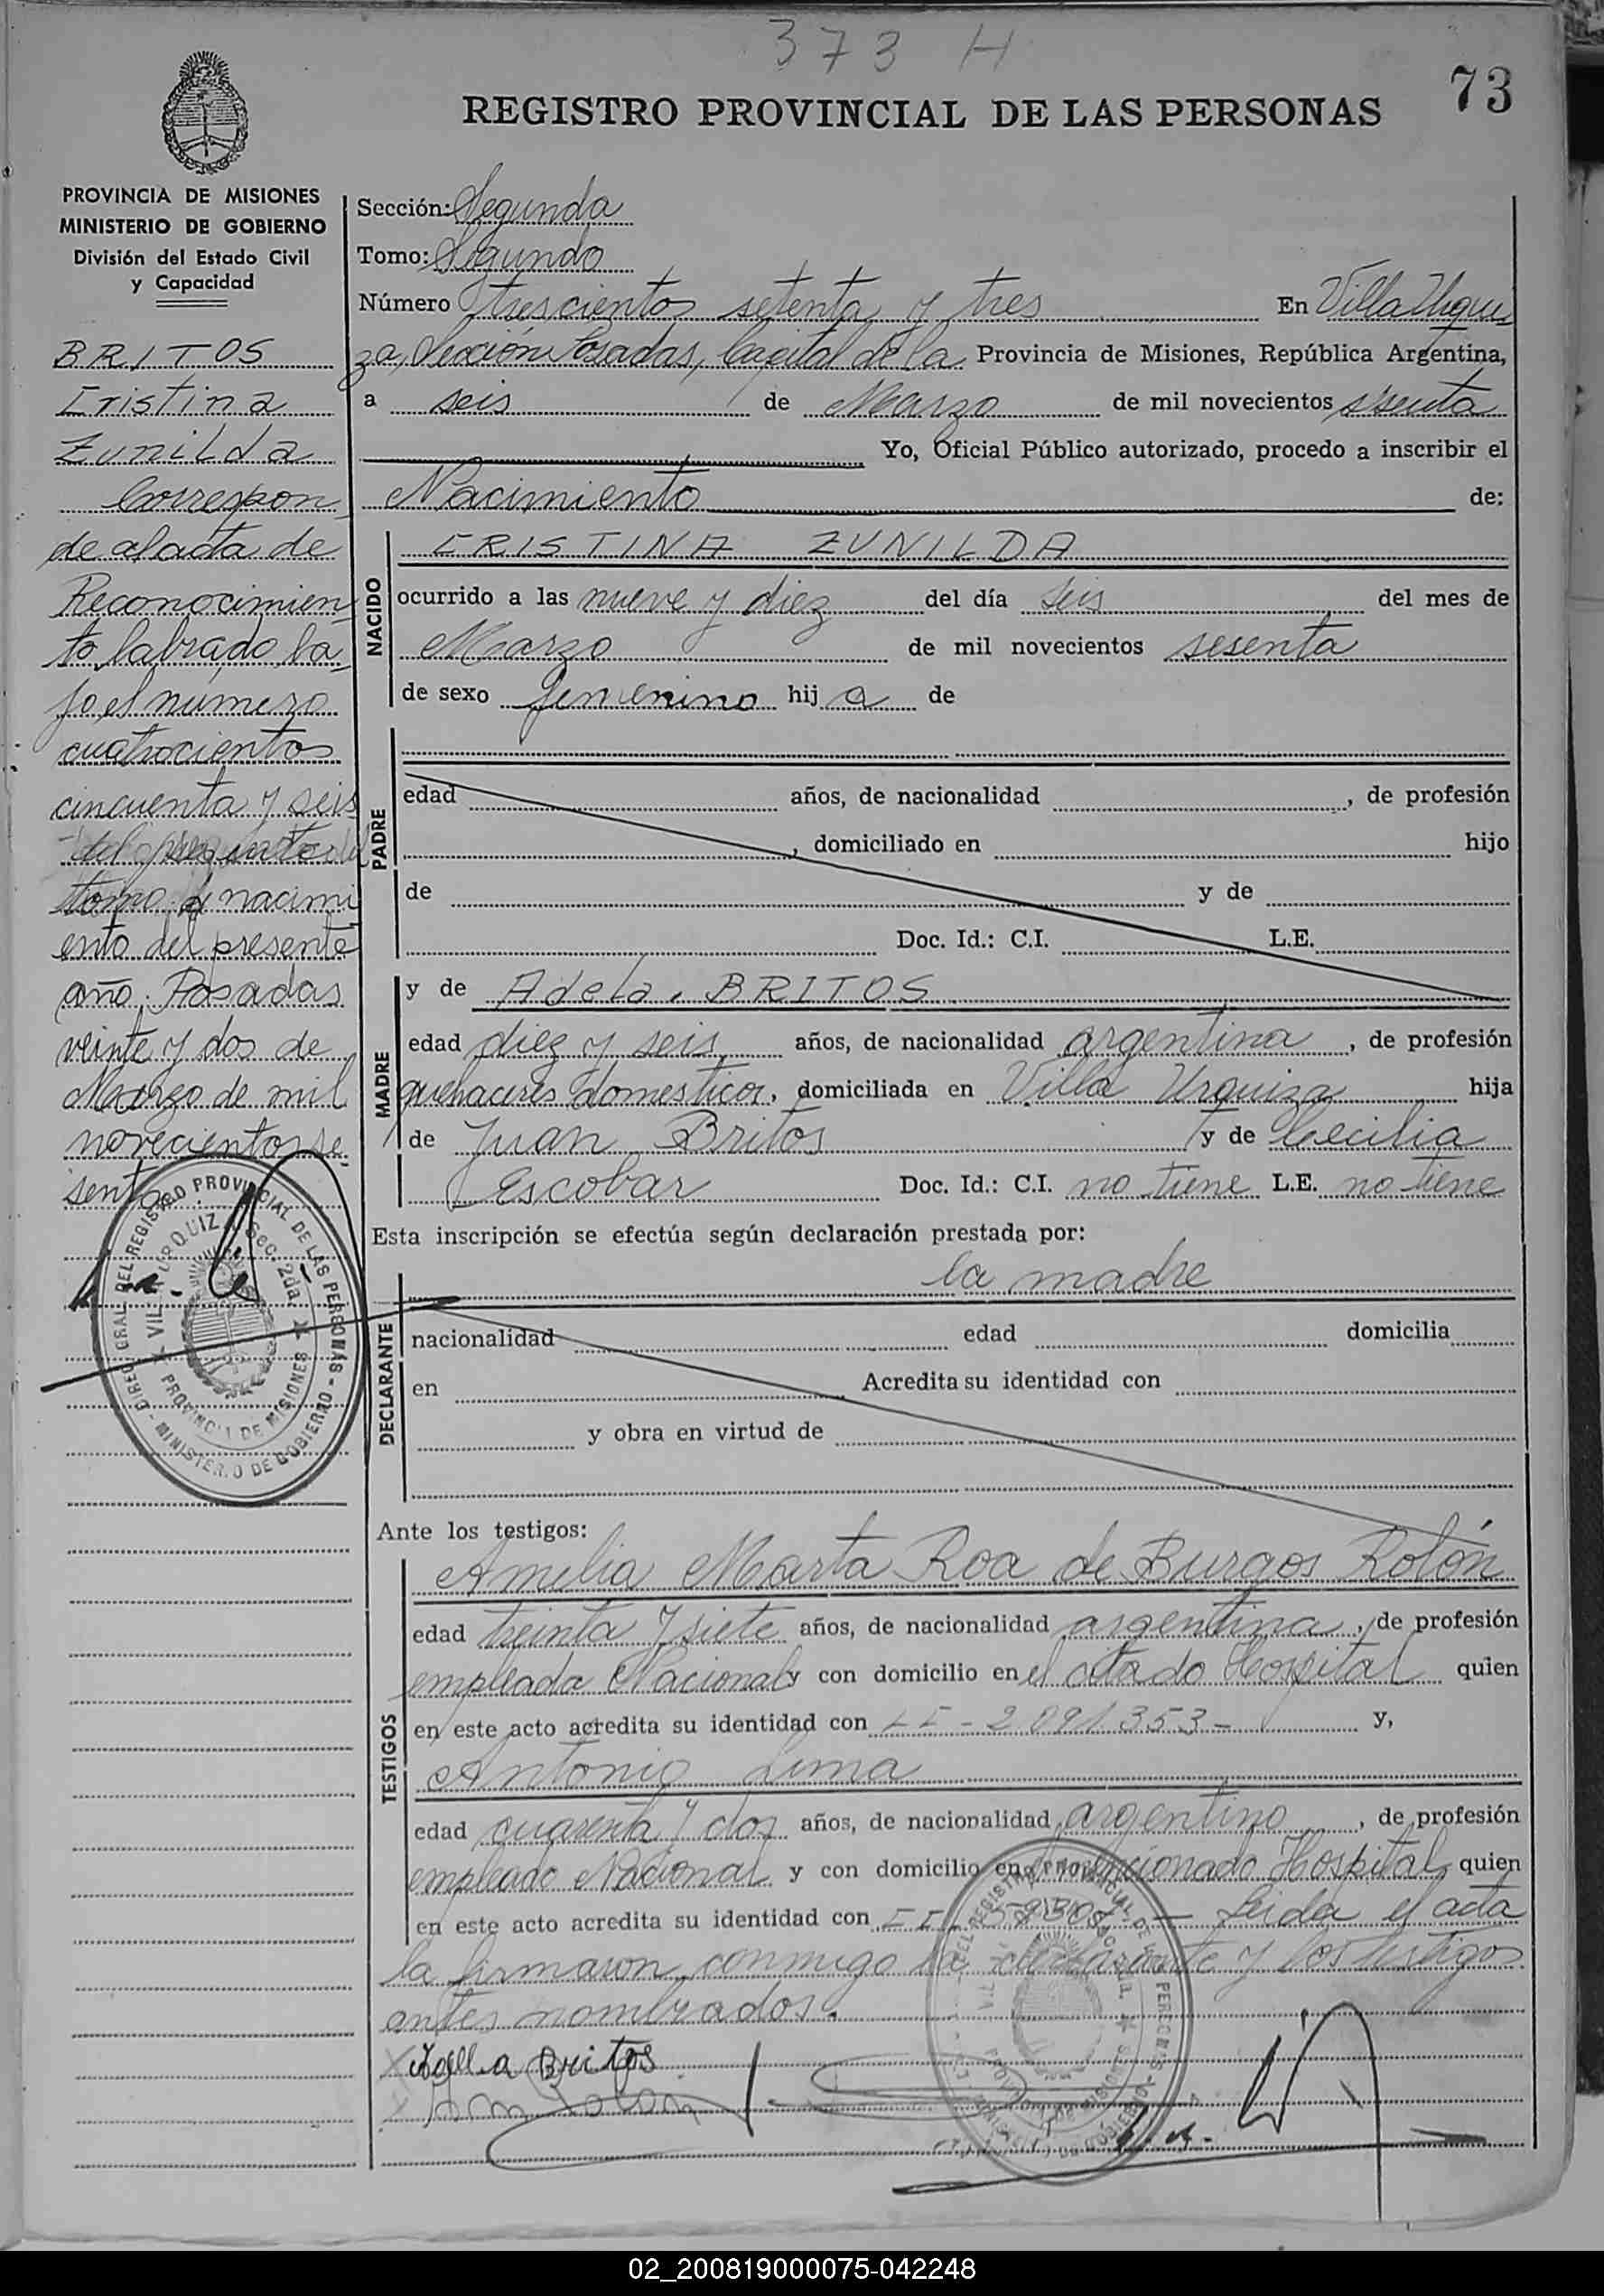 373 H
73
REGISTRO PROVINCIAL DE LAS PERSONAS
PROVINCIA DE MISIONES
MINISTERIO DE GOBIERNO
División del Estado Civil
y Capacidad
BRITOS
Cristina
Zunilda
Correspon
de al acta de
Reconocimien
to labrado ba
jo el número
cuatrocientos
cincuenta y seis
del
tomo nacimi
ento del presente
año. Posadas
veinte y dos de
Marzo de mil
novecientos se
senta
DIREC. GRAL. DEL REGISTRO PROVINCIAL DE LAS PERSONAS - MINISTERIO DE GOBIERNO
VILLA URQUIZA Sec. 2da.
PROVINCIA DE MISIONES
Sección: Segunda
Tomo: Segundo
Número trescientos setenta y tres En Villa Urqui
za, Sección Posadas, Capital de la Provincia de Misiones, República Argentina,
a seis de Marzo de mil novecientos sesenta
Yo, Oficial Público autorizado, procedo a inscribir el
Nacimiento de:
NACIDO
CRISTINA ZUNILDA
ocurrido a las nueve y diez del día seis del mes de
Marzo de mil novecientos sesenta
de sexo femenino hij a de
PADRE
edad años, de nacionalidad , de profesión
, domiciliado en hijo
de y de
Doc. Id.: C.I. L.E.
MADRE
y de Adela. BRITOS
edad diez y seis años, de nacionalidad argentina, de profesión
quehaceres domesticos, domiciliada en Villa Urquiza hija
de Juan Britos y de Cecilia
Escobar Doc. Id.: C.I. no tiene L.E. no tiene
Esta inscripción se efectúa según declaración prestada por:
DECLARANTE
la madre
nacionalidad edad domicilia
en Acredita su identidad con
y obra en virtud de
Ante los testigos:
TESTIGOS
Amelia Marta Roa de Burgos Rolón
edad treinta y siete años, de nacionalidad argentina, de profesión
empleada Nacional y con domicilio en el citado Hospital quien
en este acto acredita su identidad con 2091353- y,
Antonio Lima
edad cuarenta y dos años, de nacionalidad argentino, de profesión
empleado Nacional y con domicilio en el mencionado Hospital quien
en este acto acredita su identidad con Leida el acta
la firmaron conmigo la declarante y los testigos
antes nombrados.
Adella Britos
02_200819000075-042248